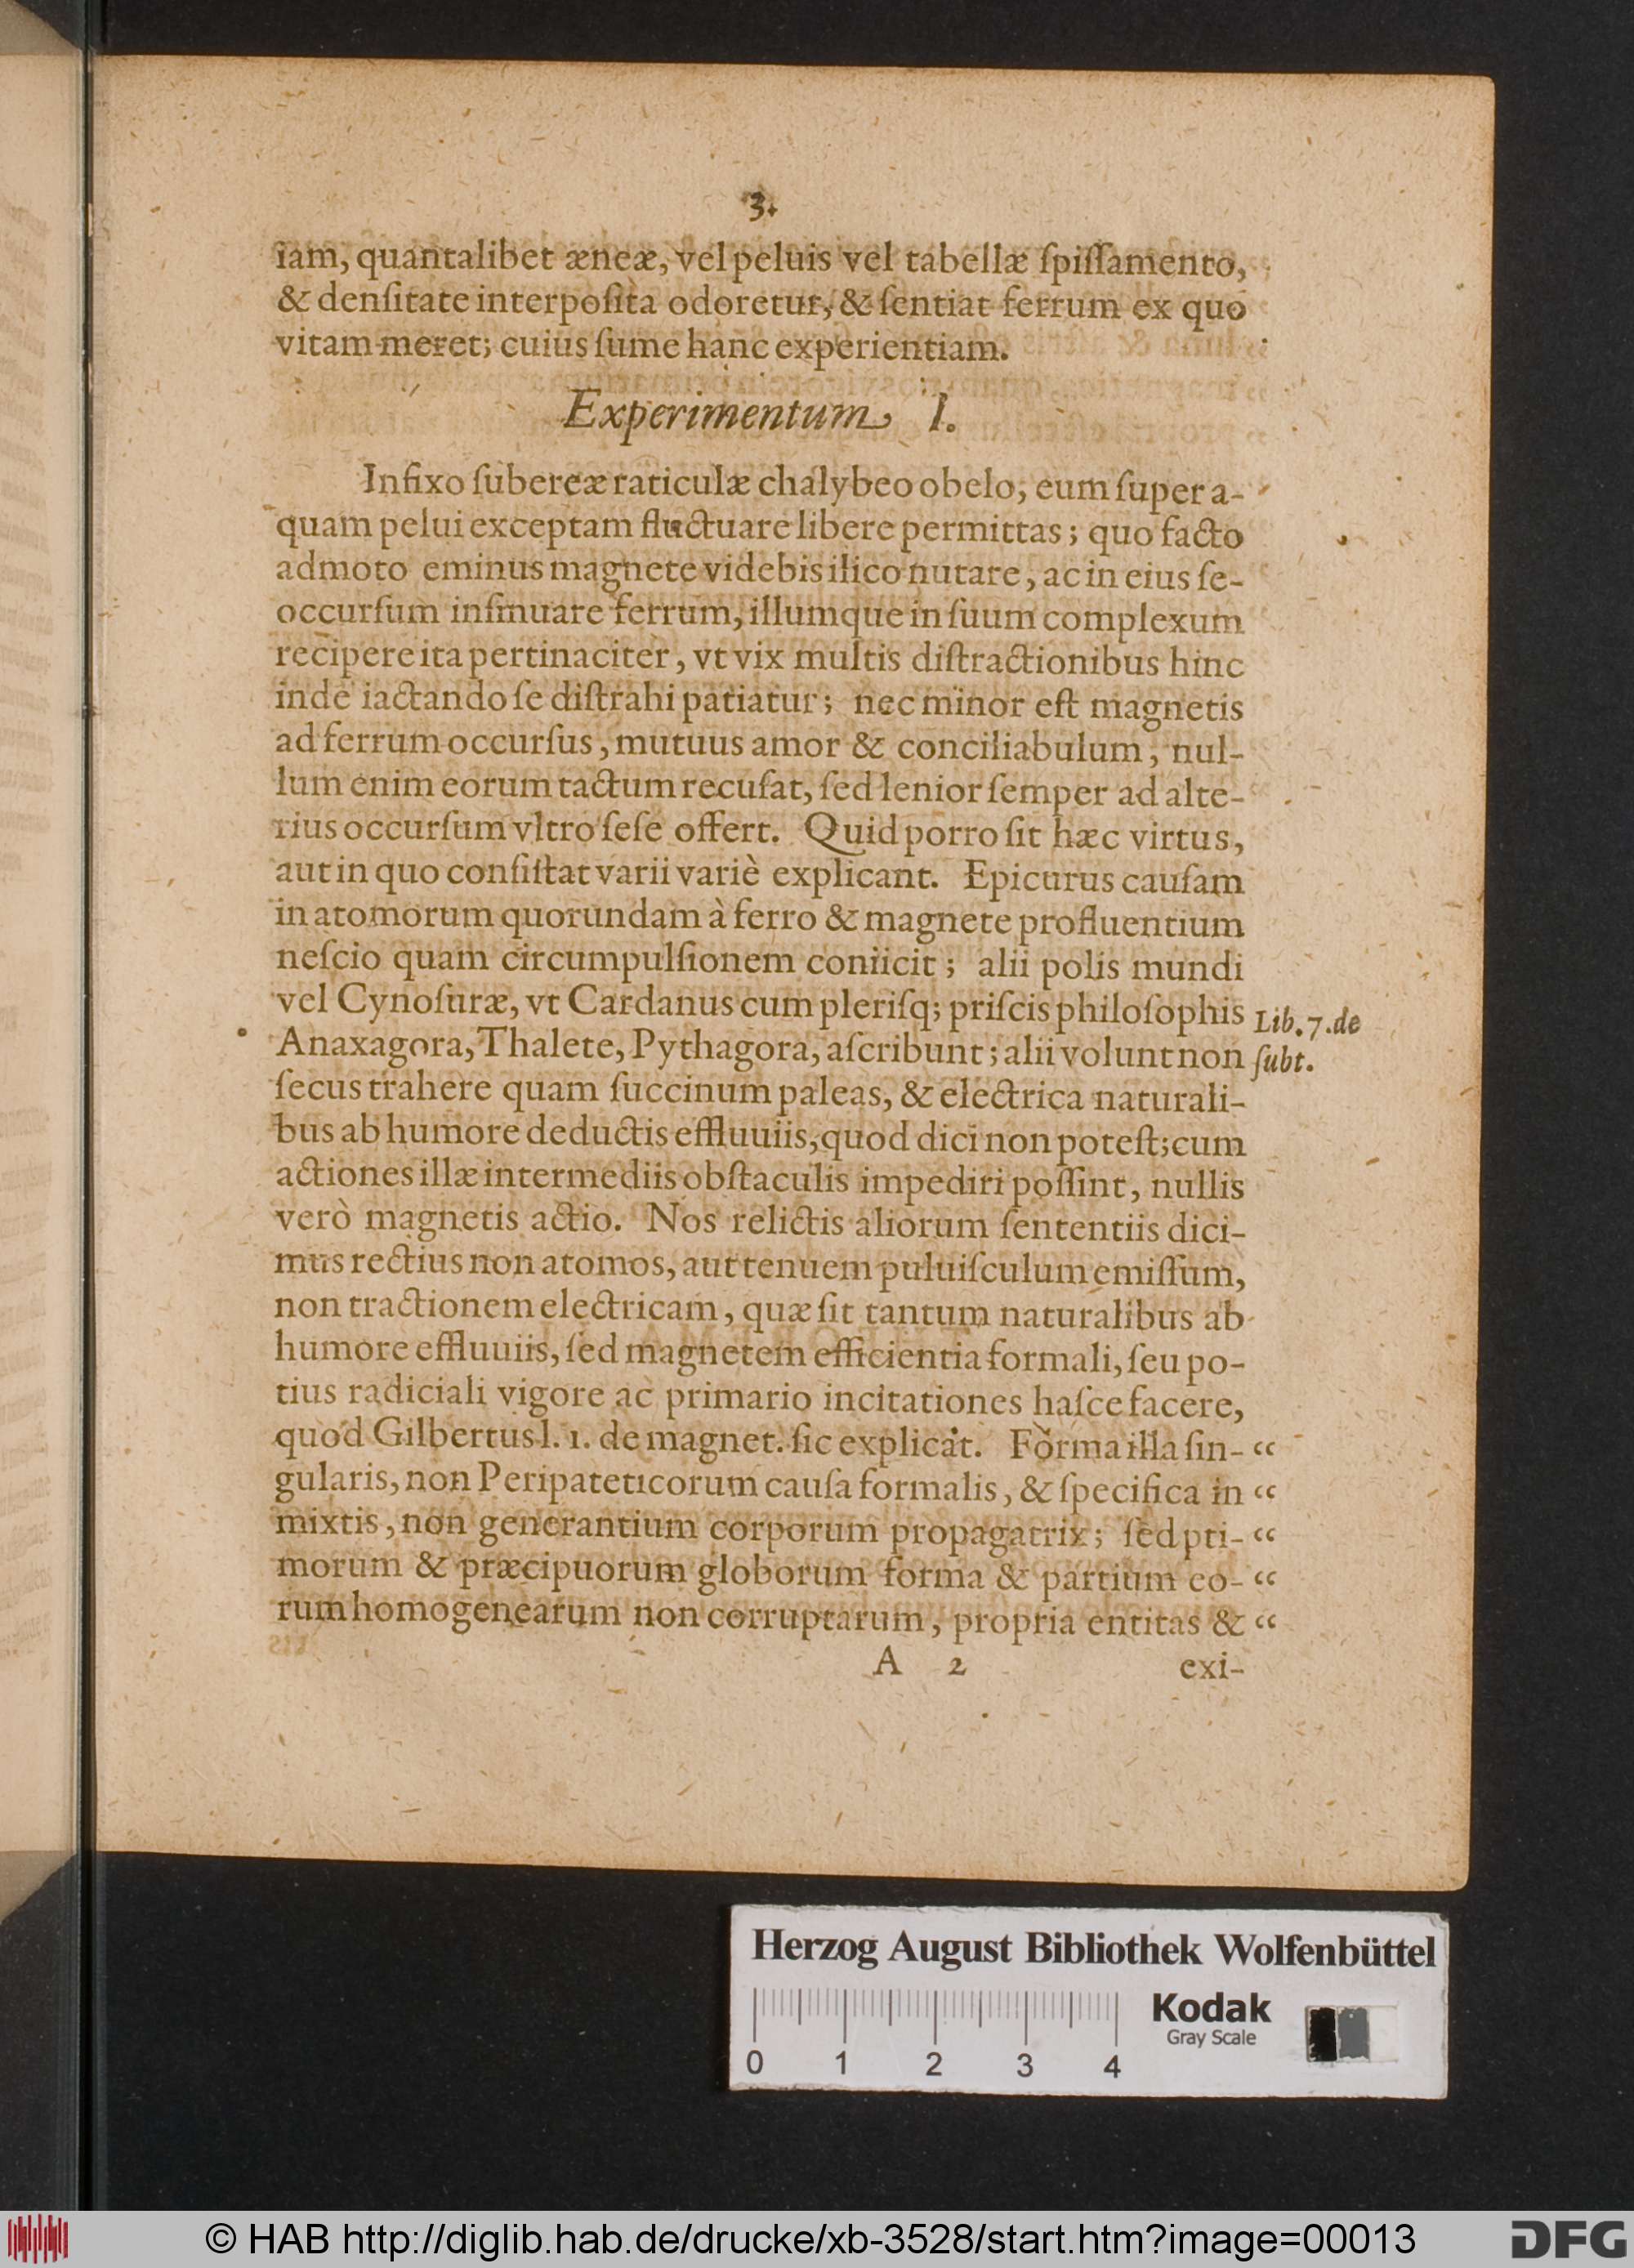 3.
iam, quantalibet æneæ, vel peluis vel tabellæ ſpiſſamento,
& denſitate interpoſita odoretur, & ſentiat ferrum ex quo
vitam meret; cuius ſume hanc experientiam.
Experimentum I.
Infixo ſubereæ raticulæ chalybeo obelo, eum ſuper a-
quam pelui exceptam fluctuare libere permittas; quo facto
admoto eminus magnete videbis ilico nutare, ac in eius ſe-
occurſum inſinuare ferrum, illumque in ſuum complexum
recipere ita pertinaciter, vt vix multis diſtractionibus hinc
inde iactando ſe diſtrahi patiatur; nec minor eſt magnetis
ad ferrum occurſus, mutuus amor & conciliabulum, nul-
lum enim eorum tactum recuſat, ſed lenior ſemper ad alte-
rius occurſum vltro ſeſe offert. Quid porro ſit hæc virtus,
aut in quo conſiſtat varii variè explicant. Epicurus cauſam
in atomorum quorundam à ferro & magnete profluentium
neſcio quam circumpulſionem coniicit; alii polis mundi
vel Cynoſuræ, vt Cardanus cum pleriſq; priſcis philoſophis Lib. 7. de
Anaxagora, Thalete, Pythagora, aſcribunt; alii volunt non ſubt.
ſecus trahere quam ſuccinum paleas, & electrica naturali-
bus ab humore deductis effluuiis, quod dici non poteſt; cum
actiones illæ intermediis obſtaculis impediri poſſint, nullis
verò magnetis actio. Nos relictis aliorum ſententiis dici-
mus rectius non atomos, aut tenuem puluiſculum emiſſum,
non tractionem electricam, quæ ſit tantum naturalibus ab
humore effluuiis, ſed magnetem efficientia formali, ſeu po-
tius radiciali vigore ac primario incitationes haſce facere,
quod Gilbertus l. 1. de magnet. ſic explicat. Forma illa ſin- “
gularis, non Peripateticorum cauſa formalis, & ſpecifica in “
mixtis, non generantium corporum propagatrix; ſed pri- “
morum & præcipuorum globorum forma & partium eo- “
rum homogenearum non corruptarum, propria entitas & “
A 2 exi-
Herzog August Bibliothek Wolfenbüttel
Kodak
Gray Scale
0 1 2 3 4
© HAB http://diglib.hab.de/drucke/xb-3528/start.htm?image=00013 DFG